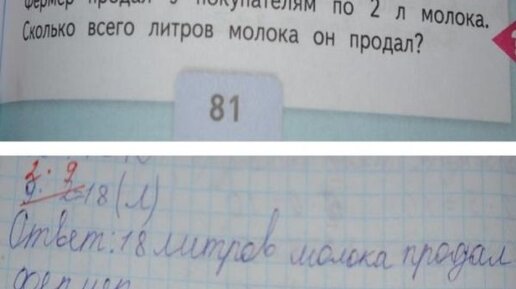 Фермер продал 9 покупателям по 2 л молока.
Сколько всего литров молока он продал?
81
2 · 9
9 · 2=18 (л)
Ответ: 18 литров молока продал
фермер